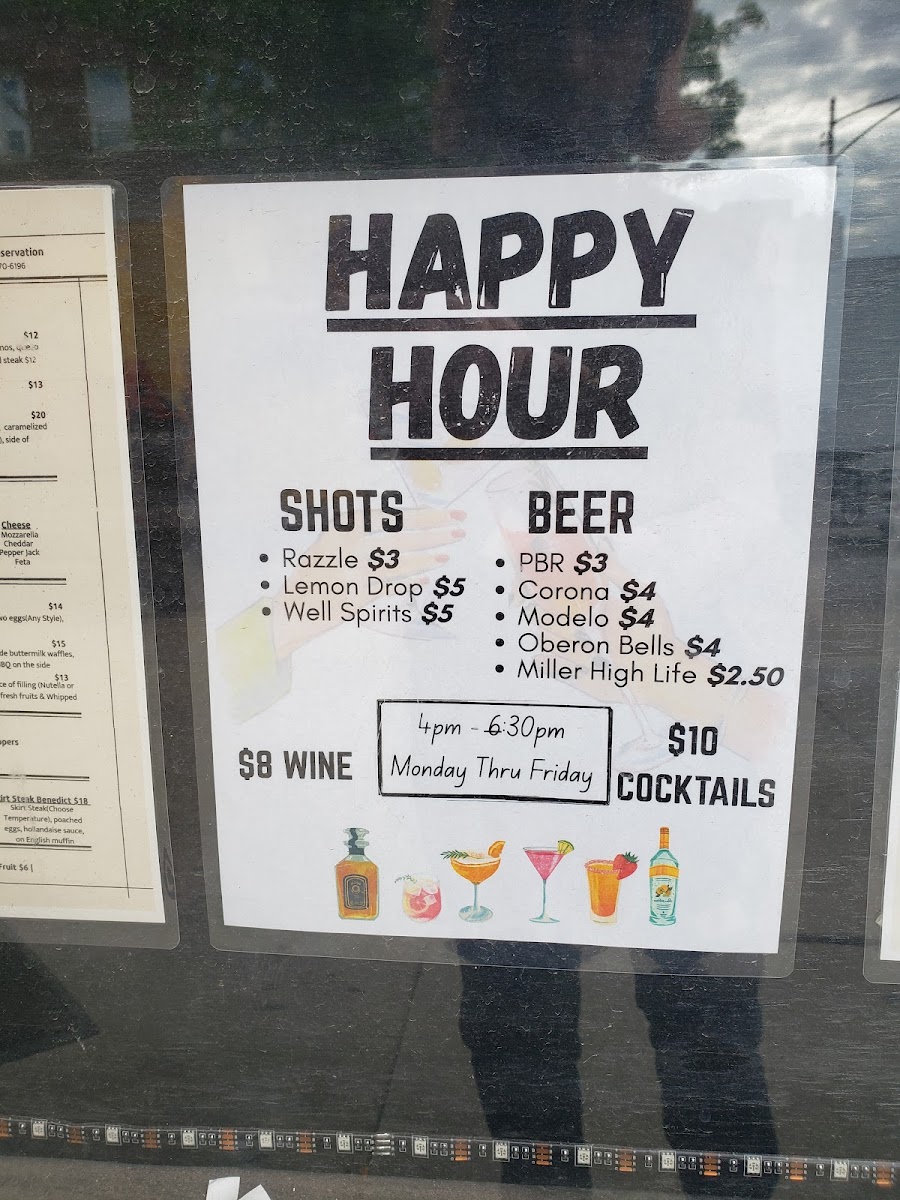 servation
70-6196
$12
steak $12
$13
$20
caramelized
, side of
Cheese
Mozzarella
Cheddar
Pepper Jack
Feta
$14
eggs(Any Style),
$15
buttermilk waffles,
BQ on the side
$13
ce of filling (Nutella or
fresh fruits & Whipped
Steak Benedict $18
Skirt Steak(Choose
Temperature), poached
eggs, hollandaise sauce,
on English muffin
Fruit $6 |
HAPPY
HOUR
SHOTS
• Razzle $3
• Lemon Drop $5
• Well Spirits $5
BEER
• PBR $3
• Corona $4
• Modelo $4
• Oberon Bells $4
• Miller High Life $2.50
$8 WINE
4pm - 6:30pm
Monday Thru Friday
$10
COCKTAILS